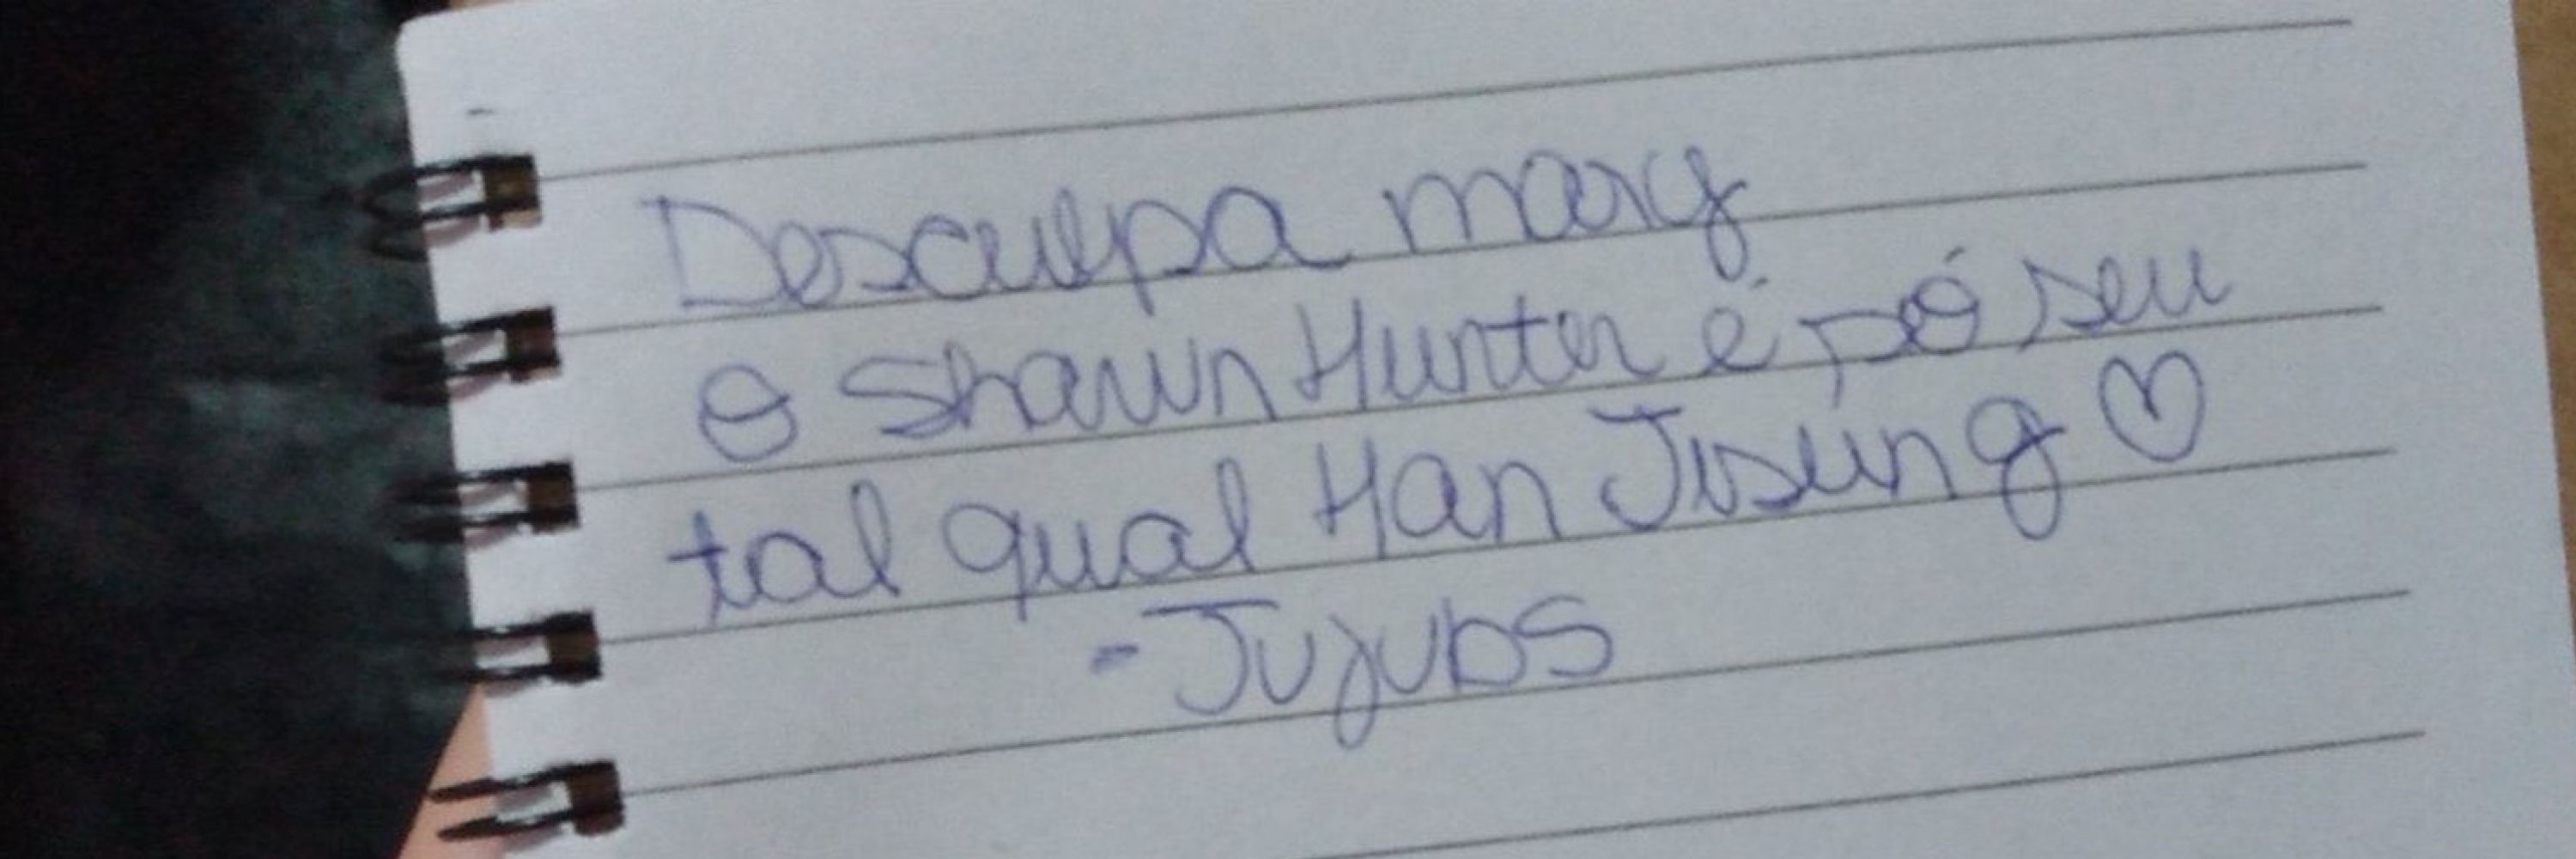 Desculpa mary
O Shawn Hunter é só seu
tal qual Han Jisung ♡
- Jujubs